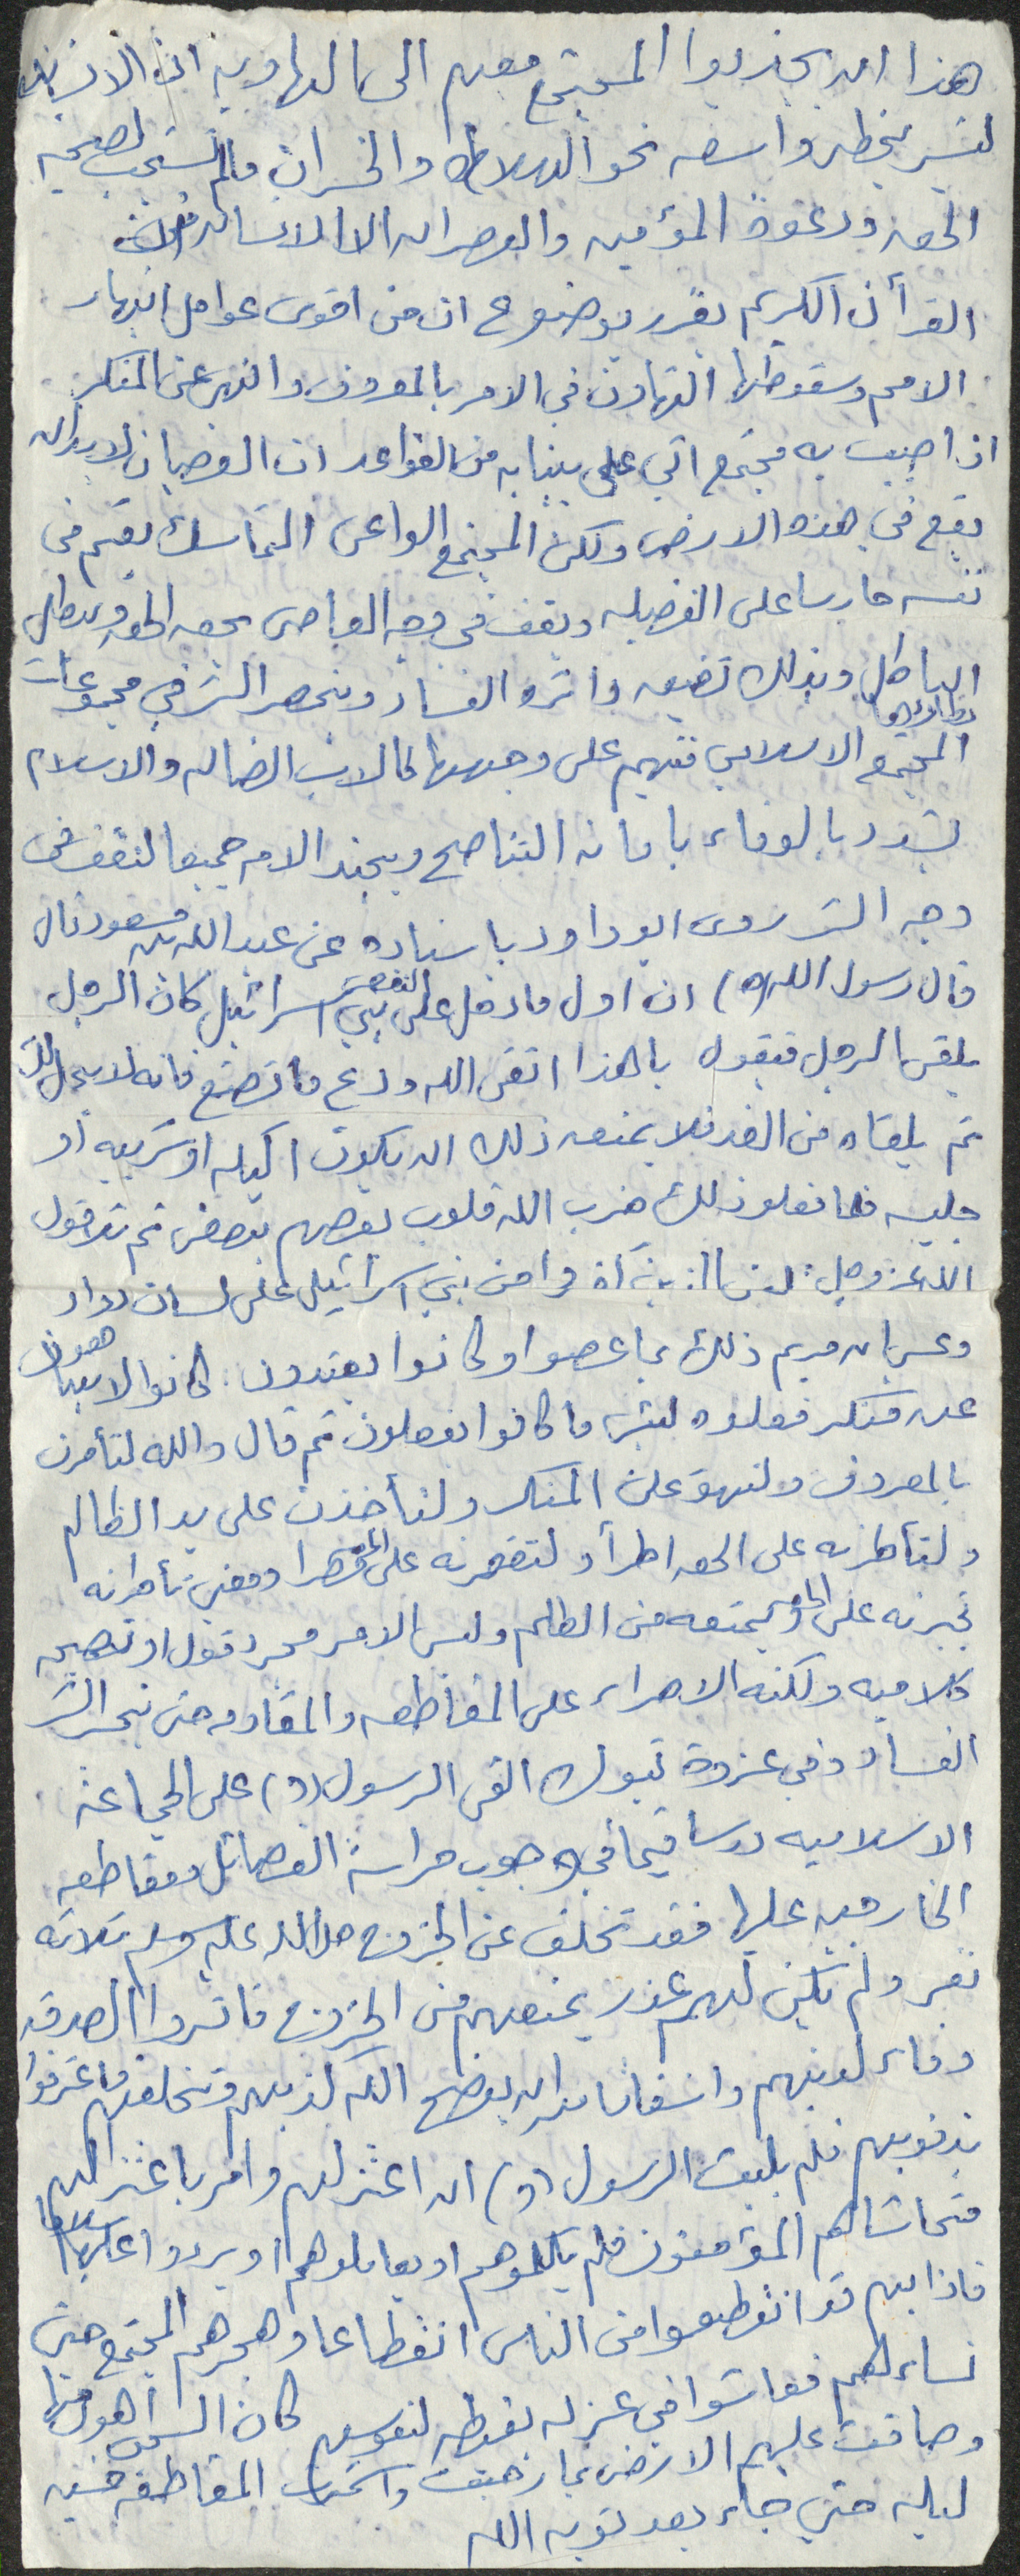 هذا ان يجذبوا المجتمع معهم الى الهاويه ان الانسان
ليسير بخطى واسعه نحو الهلاك والخسران مالم يستجب لصيحه
الحق ودعوة المؤمنين والعصر ان الانسان
القرأن الكريم يقرر بوضوح ان من اقوى عوامل انهيار
الامم وسقوطها التهاون في الامر بالمعروف والنهي عن المنكر
اذا اصيب به مجتمع اتي على بنيانه من القواعد ان العصيان لابد ان
يقع في هذه الارض ولكن المجتمع الواعى المتماسك يقيم في
نفسه حارسا على الفضيله ويقف في وجه العاصى يحق الحق ويبطل
الباطل وبذلك تضيق دائره الفساد وينحصر الشر في مجموعات
يطاردها
المجتمع الاسلامي فتهيم على وجهها كالابل الضاله والاسلام
يشدد بالوفاء بامانه التناصح ويجند الامه جميعا لتقف في
وجه الشر روى ابوداود باسناده عن عبدالله بن مسعود قال
قال رسول الله (ص) ان اول مادخل النقص على بني اسرائيل كان الرجل
يلقى الرجل فيقول ياهذا اتقى الله ودع ماتصنع فانه لايحل لك
ثم يلقاه من الغد فلا يمنعه ذلك ان يكون اكيله اوشريبه او
جليسه فلما فعلوذلك ضرب الله قلوب بعضهم ببعض ثم تلا قول
الله عزوجل: لعن الذين كفروا من بني اسرائيل على لسان دواد
وعيسى ابن مريم ذلك بما عصوا وكانوا يعتدون. كانوا لايتناهون
عن منكر فعلوه لبئس ما كانوا يفعلون ثم قال والله لتأمرن
بالمعروف ولتنهون عن المنكر ولتأخذن على يد الظالم
ولتأطرنه على الحق اطرأ ولتقصرنه على الحق قصرا ومعنى تأطرنه
تجبرنه على الحق ويمنعه من الظلم وليس الامر مجرد قول او نصيحه
كلاميه ولكنه الاصرار على المقاطعه والمقاومه حتى ينحسر الشر
الفساد وفي غزوة تبوك القى الرسول (ص) على الجماعه
الاسلاميه درسا قيما في وجوب حراسة الفضائل ومقاطعه
الخارجين عليها فقد تخلف عن الخروج صلى الله عليه وسلم ثلاثه
نفر ولم يكن لهم عذر يمنعهم من الخروج فاثروا الصدق
وفاء لدينهم واشفاقا من ان يفضح الله كذبهم وتخلفهم فاعترفوا
بذنوبهم فلم يلبث الرسول (ص) ان اعتزلهم وامر باعتزالهم
فتحاشاهم المؤمنون فلم يكلموهم او يعاملوهم او يردوا عليهم سلاما
فاذا بهم قد انقطعوا من الناس انقطاعا وهجرهم المجتمع حتى
نساءهم فعاشوا في عزله كان السجن اهون منها
وضاقت عليهم الارض بما رحبت واستمرت المقاطعه خمسين
ليله حتى جاء بعد توبه الله